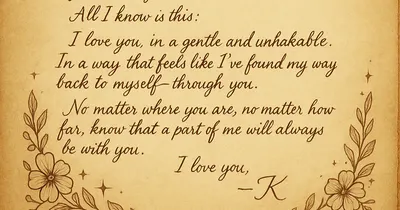 All I know is this:
I love you, in a gentle and unhakable.
In a way that feels like I've found my way
back to myself—through you.
No matter where you are, no matter how
far, know that a part of me will always
be with you.
I love you,
—K